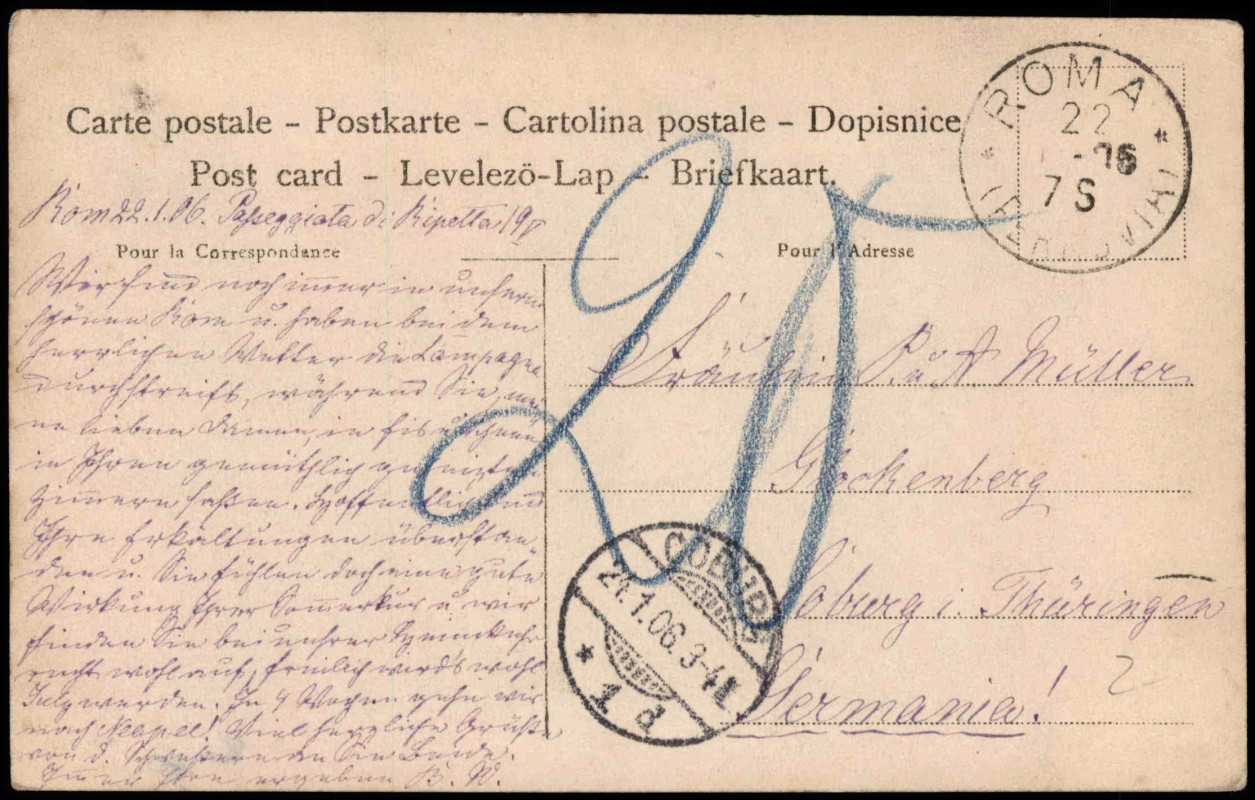 Carte postale – Postkarte – Cartolina postale – Dopisnice
Post card – Levelezö-Lap – Briefkaart.
ROMA
22
-06
7 S
Rom 22.1.06. Passeggiata di Ripetta 19
Pour la Correspondance
Pour l'Adresse
Wir sind noch im̅er in unserm
schönen Rom u. haben bei dem
herrlichen Wetter die Campagna
durchstreift, während Sie, mei
ne lieben Damen, in Eis u. Schnee
in Ihren gemüthlich geheizten
Zim̅ern saßen. Hoffentlich sind
Ihre Erkältungen überstan„
den u. Sie fühlen doch eine gute
Wirkung Ihrer Som̅erkur u. wir
finden Sie bei unsrer Heimkehr
recht wohl auf, freilich wird's wohl
July werden. In 4 Wochen gehn wir
nach Neapel! Viel herzliche Grüße
von d. Schwestern an Sie Beide.
Im̅er Ihre ergebene B. W.
20
Fräulein P. u A Müller
Glockenberg
Coburg i. Thüringen
Germania!
2
COBURG
24.1.06.3-4N
* 1 d